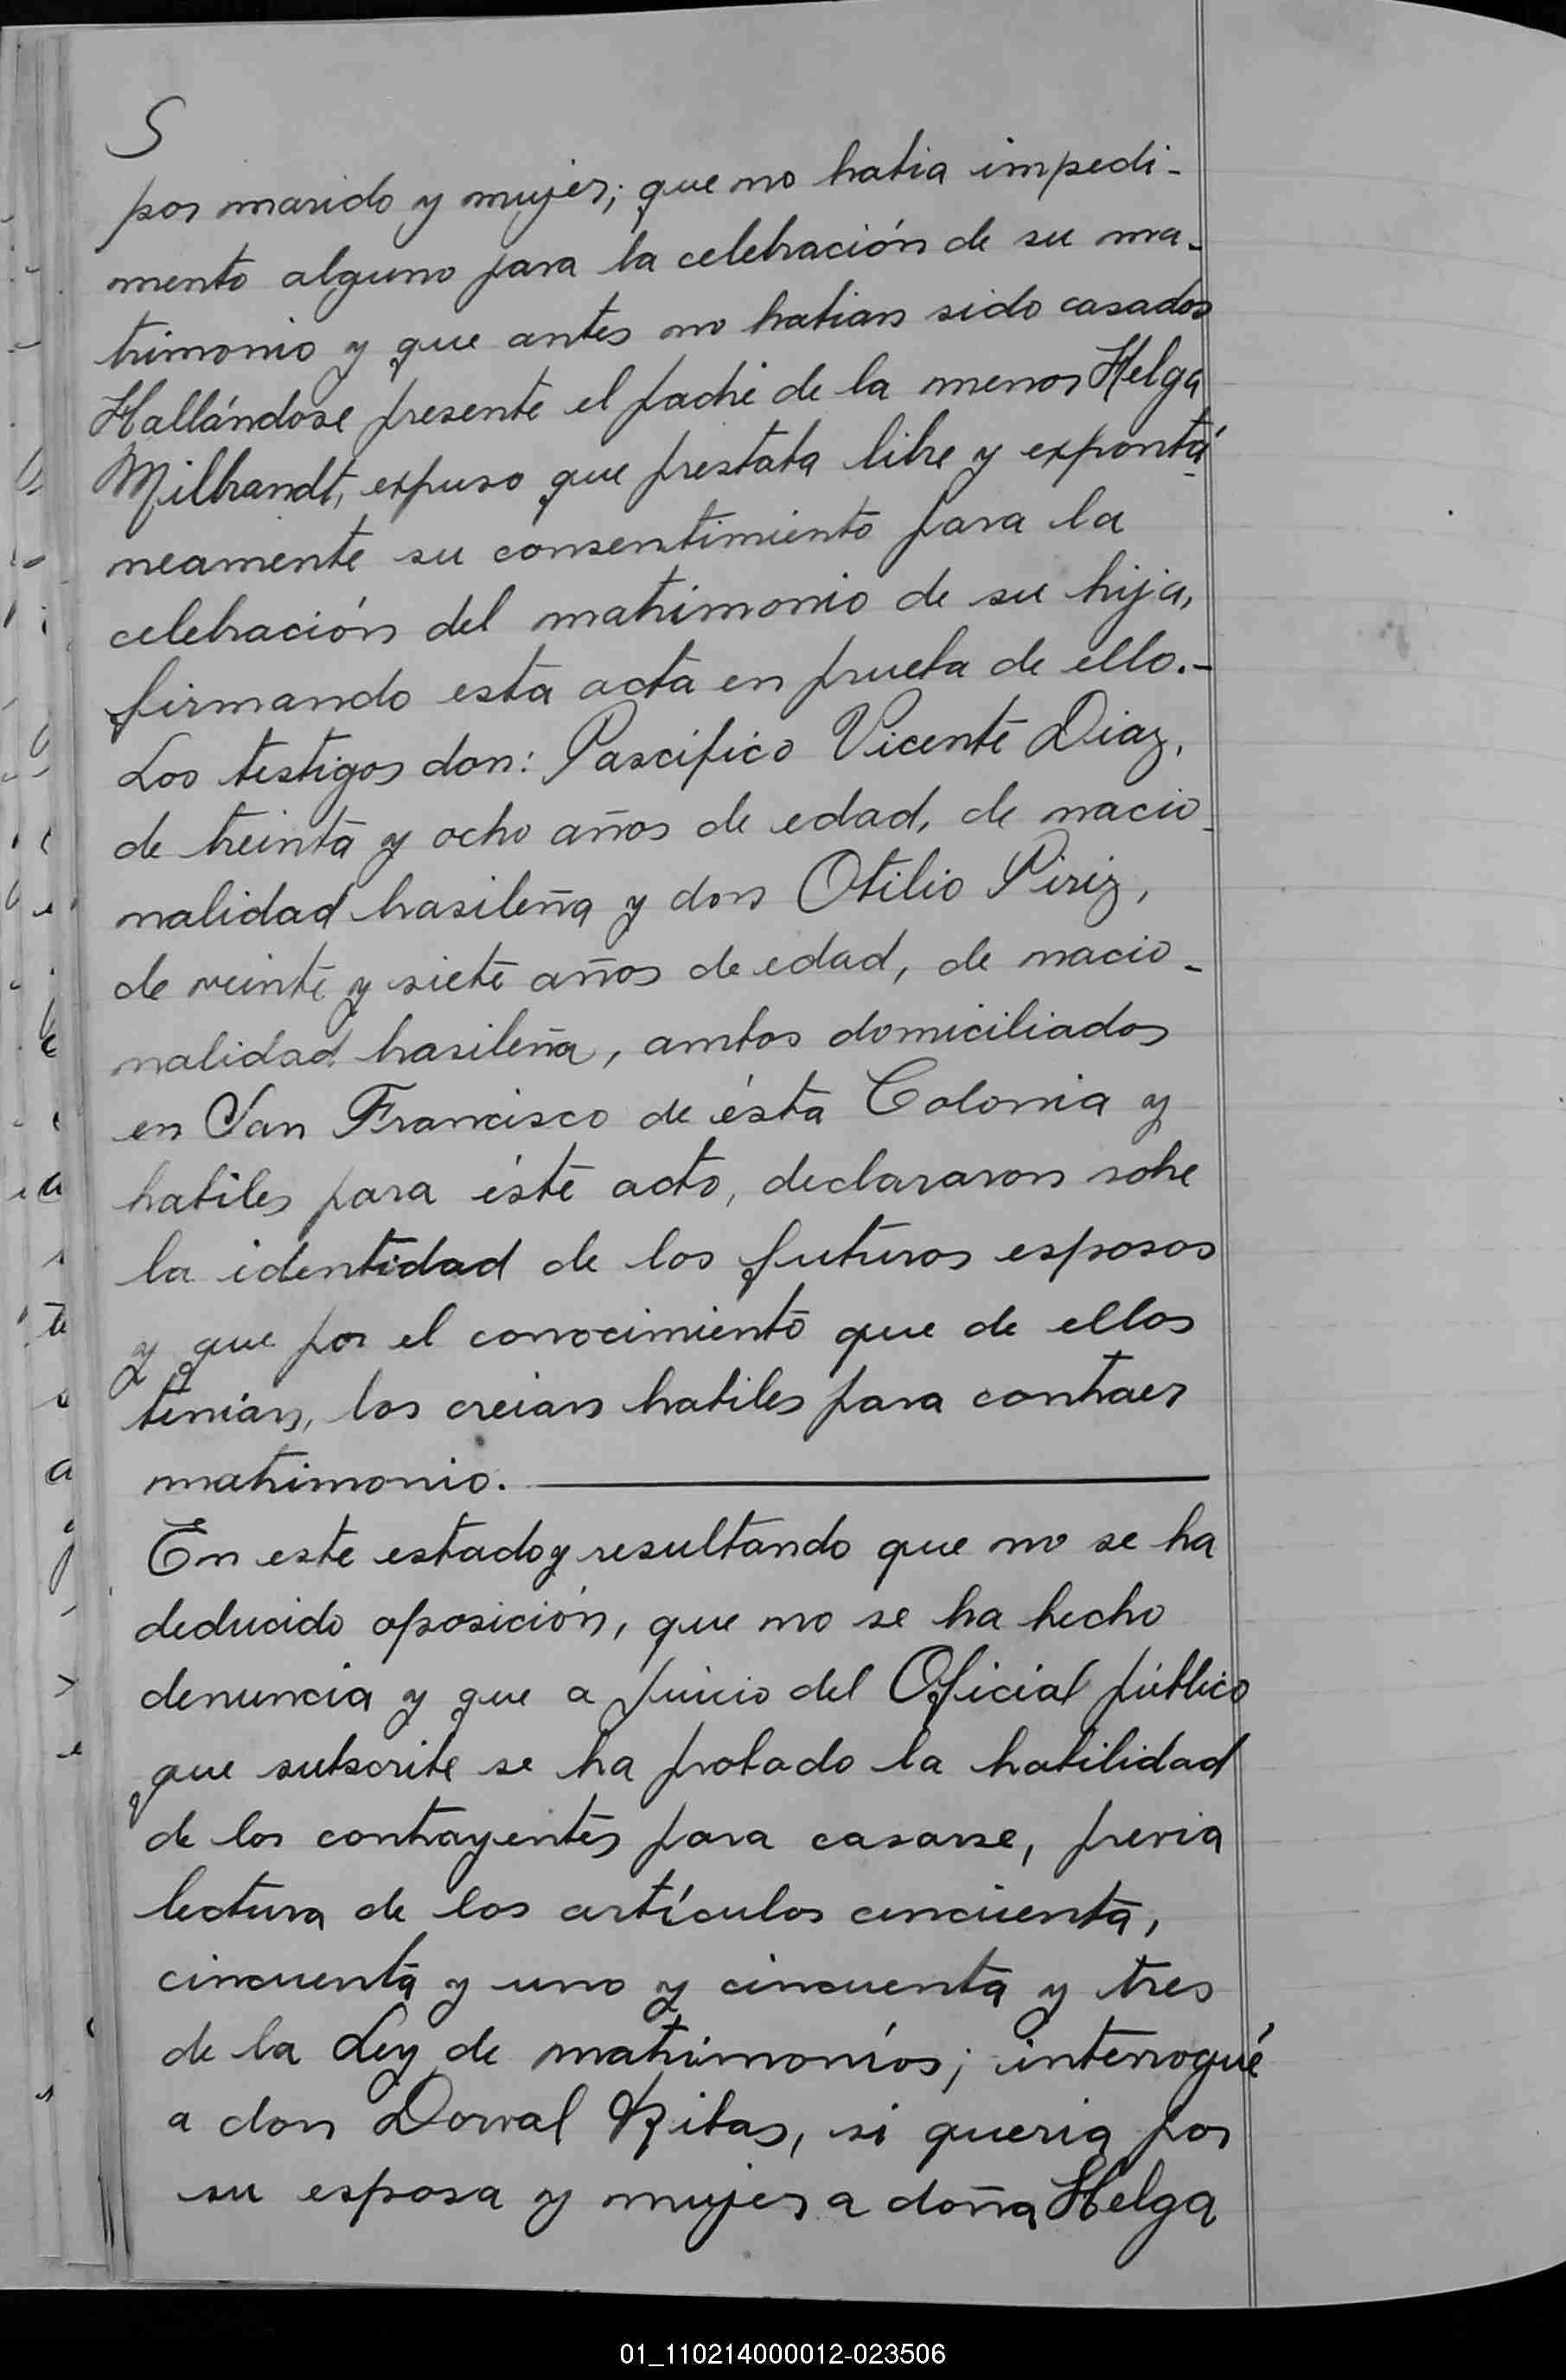 S
por marido y mujer; que no habia impedi-
mento alguno para la celebración de su ma-
trimonio y que antes no habian sido casados
Hallándose presente el padre de la menor Helga
Milbrandt, expuso que prestaba libre y expontá
neamente su consentimiento para la
celebración del matrimonio de su hija,
firmando esta acta en prueba de ello.-
Los testigos don: Pascifico Vicente Diaz,
de treinta y ocho años de edad, de nacio-
nalidad brasileña y don Otilio Piriz,
de veinte y siete años de edad, de nacio-
nalidad brasileña, ambos domiciliados
en San Francisco de ésta Colonia y
habiles para éste acto, declararon sobre
la identidad de los futuros esposos
y que por el conocimiento que de ellos
tenian, los creian habiles para contraer
matrimonio.
En este estado y resultando que no se ha
deducido oposición, que no se ha hecho
denuncia y que a juicio del Oficial público
que subscribe se ha probado la habilidad
de los contrayentes para casarse, previa
lectura de los artículos cincuenta,
cincuenta y uno y cincuenta y tres
de la Ley de matrimonios; interrogué
a don Dorval Ribas, si queria por
su esposa y mujer a doña Helga
01_110214000012-023506